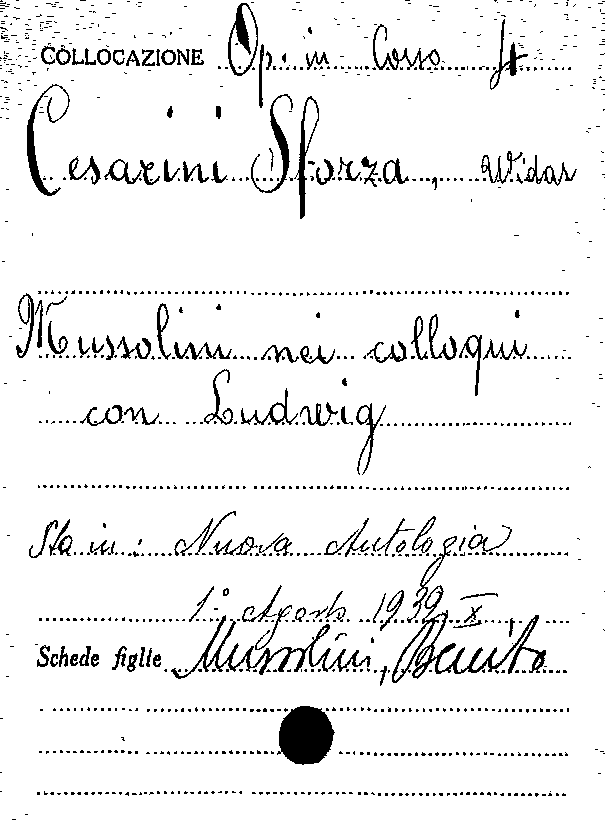 COLLOCAZIONE Op. in Corso
Cesarini Sforza, Widar
Mussolini nei colloqui
con Ludwig
Sta in: Nuova Antologia
1.° Agosto 1932, X
Schede figlie Mussolini, Benito